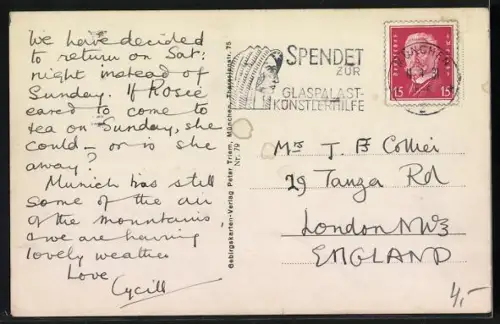 We have decided
to return on Sat:
night instead of
Sunday. If Rosie
cared to come to
tea on Sunday, she
could – or is she
away?
Munich has still
some of the air
of the mountains,
& we are having
lovely weather
Love
Cyrill
Gebirgskarten-Verlag Peter Triem, München, Theresienstr. 75
Nr. 79
SPENDET
ZUR
GLASPALAST-
KÜNSTLERHILFE
DEUTSCHES REICH
15 15
Mrs T. F. Collier
29 Tanza Rd
London NW3
ENGLAND
4,-